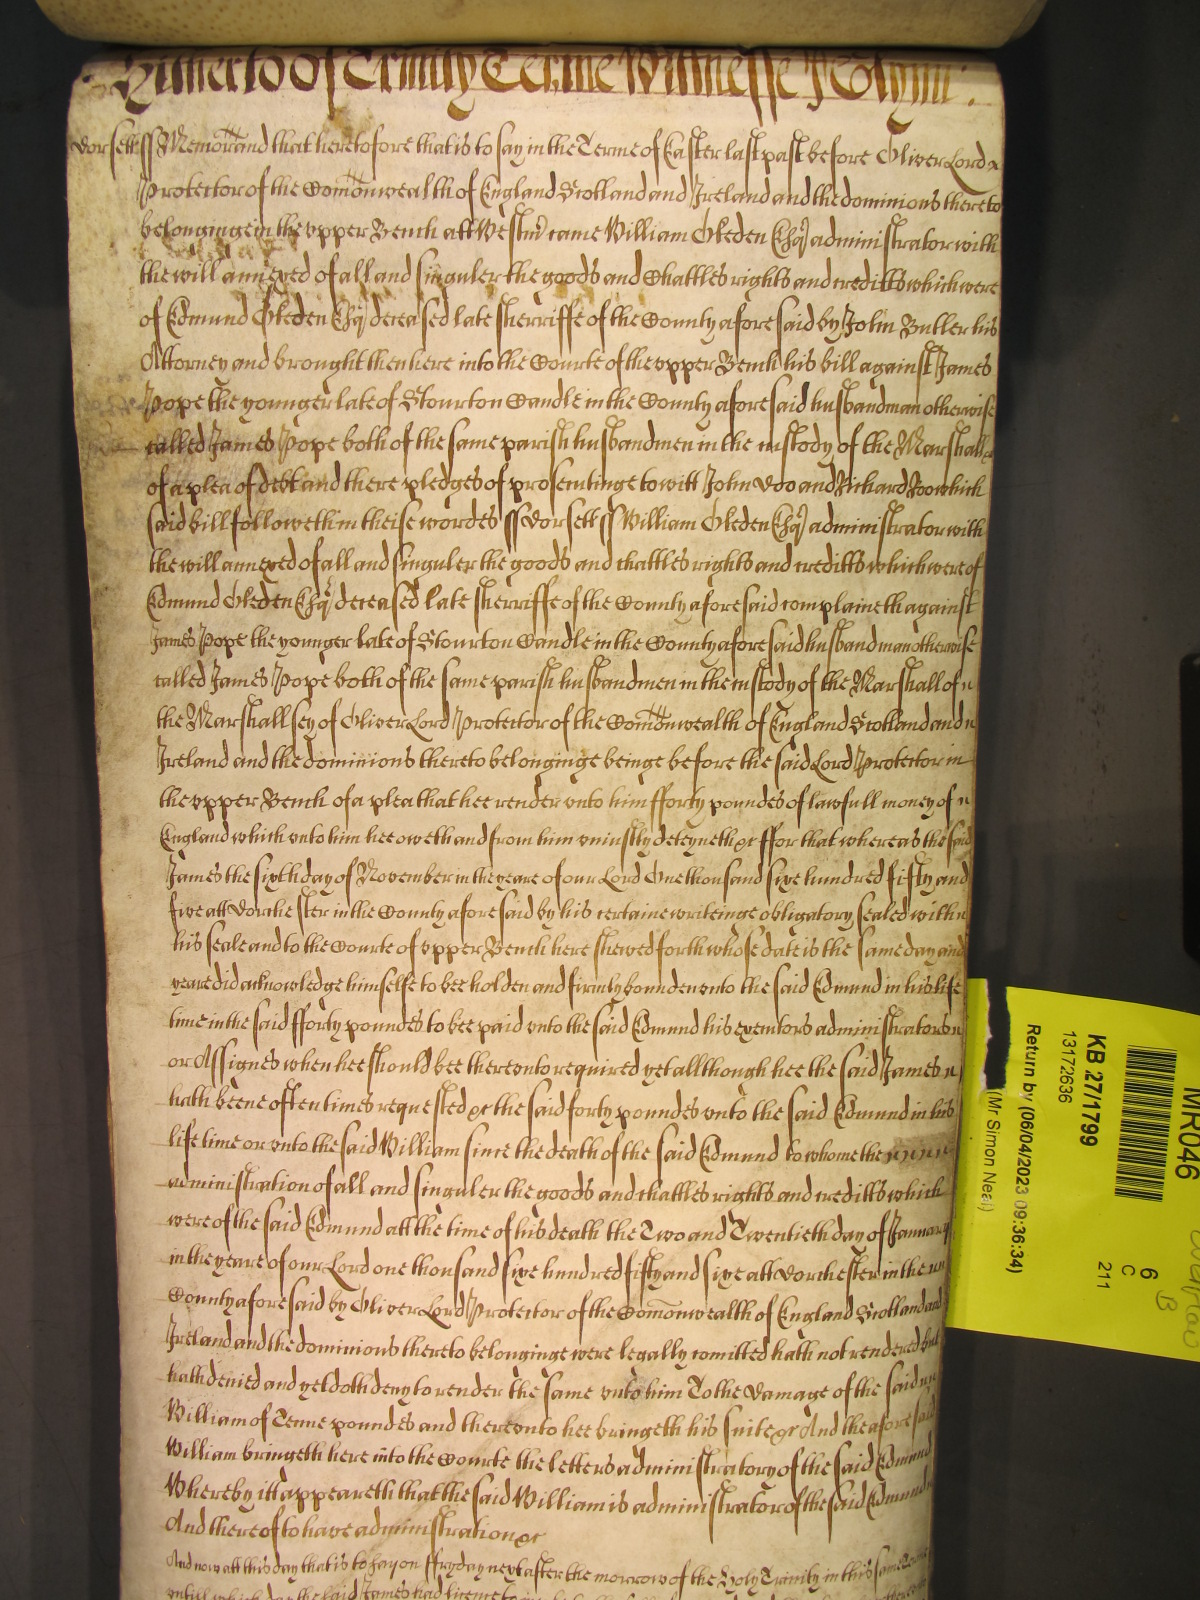 Hitherto Of Trinity Terme Wittnesse
Dorsett ss Memorand that heretofore that is to say in the Terme of Easter last past before Oliver Lord
Protector of the Comonwealth of England Scotland and Ireland and the dominions thereto
belonginge in the upper Bench att Westmr came William Oleden Esqr administrator with
the will annexed of all and singuler the goods and Chattles rights and creditts which were
of Edmund Oleden Esqr deceased late sherriffe of the County aforesaid by John Butler his
Attorney and brought then here into the Courte of the upper Bench his bill against James
Pope the younger late of Stourton Candle in the County aforesaid husbandman otherwise
called James Pope both of the same parish husbandmen in the custody of the Marshall
of a plea of debt and there pledges of prosecutinge to witt John Doo and Richard Roo which
said bill followeth in theise wordes ss Dorsett ss William Oleden Esqr administrator with
the will annexed of all and singuler the goods and chattles rights and creditts which were of
Edmund Oleden Esqr deceased late sherriffe of the County aforesaid complaineth against
James Pope the younger late of Stourton Candle in the County aforesaid husbandman otherwise
called James Pope both of the same parish husbandmen in the custody of the Marshall of
the Marshallsey of Oliver Lord Protector of the Comonwealth of England Scotland and
Ireland and the dominions thereto belonginge beinge before the said Lord Protector in
the upper Bench of a plea that hee render unto him fforty poundes of lawfull money of
England which unto him hee oweth and from him uniustly deteyneth &c ffor that whereas the said
James the sixth day of November in the yeare of our Lord One thousand sixe hundred fifty and
five att Dorchester in the County aforesaid by his certaine writeinge obligatory sealed with
his seale and to the Courte of upper Bench here shewed forth whose date is the same day and
yeare did acknowledge himselfe to bee holden and firmly bounden unto the said Edmund in his life
time in the said fforty poundes to bee paid unto the said Edmund his executors administrators
or Assignes when hee should bee thereunto required yet allthough hee the said James
hath beene oftentimes requested &c the said forty poundes unto the said Edmund in his
life time or unto the said William since the death of the said Edmund to whome the
administration of all and singuler the goods and chattles rights and creditts which
were of the said Edmund att the time of his death the Two and Twentieth day of January
in the yeare of our Lord one thousand sixe hundred fifty and sixe att Dorchester in the
County aforesaid by Oliver Lord Protector of the Comonwealth of England Scotland and
Ireland and the dominions thereto belonginge were legally comitted hath not rendered but
hath denied and yet doth deny to render the same unto him To the damage of the said
William of Tenne poundes and thereunto hee bringeth his suite &c And the aforesaid
William bringeth here into the Courte the letters administratory of the said Edmund
Whereby itt appeareth that the said William is administrator of the said Edmund
And thereof to have administration &c
And now att this day that is to say on ffryday next after the morrow of the Holy Trinity in this same Terme
untill which day the said James had licence to
MR046
KB 27/1799
13172636
Return by (06/04/2023 09:36:34)
(Mr Simon Neal)
6
C
211
B